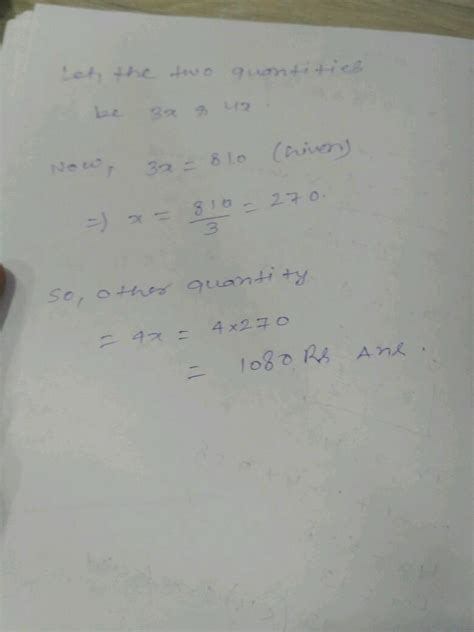 Let, the two quantities
be 3x & 4x.
Now, 3x = 810 (Given)
=) x = 810/3 = 270.
So, other quantity
= 4x = 4x270
= 1080 Rs Ans.